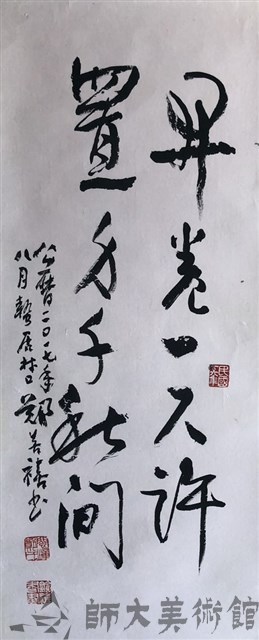 開卷一尺許
置身千秋間
公曆二〇一七年
八月蟄居林口 鄭善禧書
師大美術館